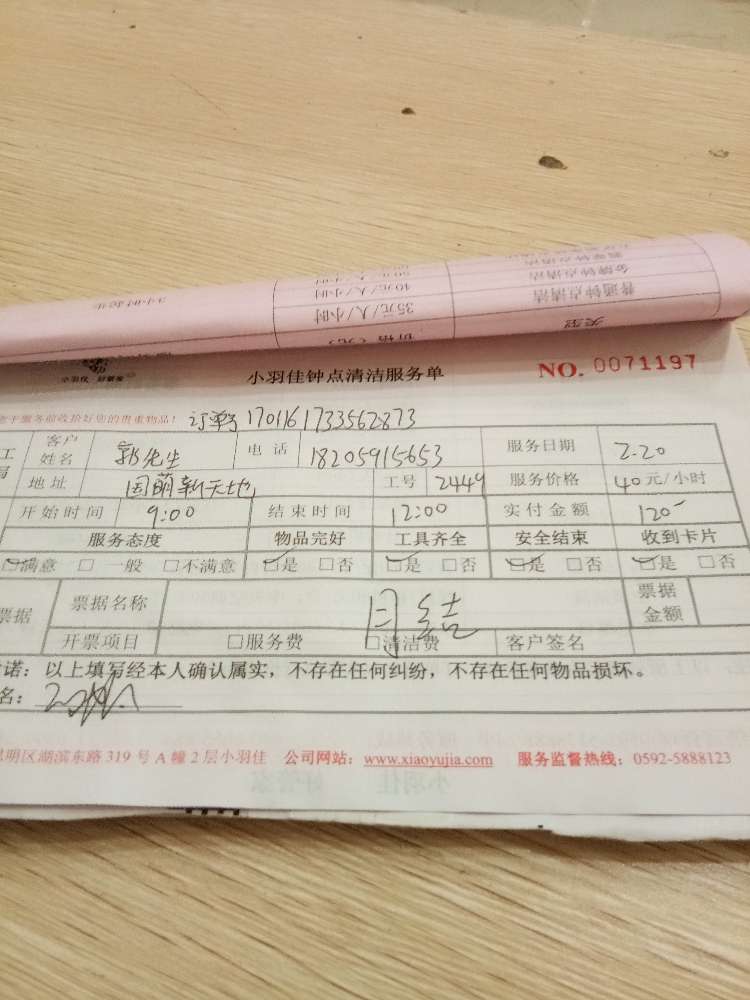 普通钟点清洁
金牌钟点清洁
类型
40元/人/小时
35元/人/小时
价格（元）
3小时起步
小羽佳·好管家
小羽佳钟点清洁服务单 NO. 0071197
于服务前收拾好您的贵重物品！ 订单号1701161733562873
客户姓名 郭先生 电话 18205915653 服务日期 2.20
地址 国萌新天地 工号 2449 服务价格 40元/小时
开始时间 9:00 结束时间 12:00 实付金额 120-
服务态度 物品完好 工具齐全 安全结束 收到卡片
满意 □ 一般 □不满意 □是 □否 □是 □否 □是 □否 □是 □否
票据 票据名称 月结 票据金额
开票项目 □服务费 □清洁费 客户签名
诺：以上填写经本人确认属实，不存在任何纠纷，不存在任何物品损坏。
名：
明区湖滨东路319号A幢2层小羽佳 公司网站：www.xiaoyujia.com 服务监督热线：0592-5888123